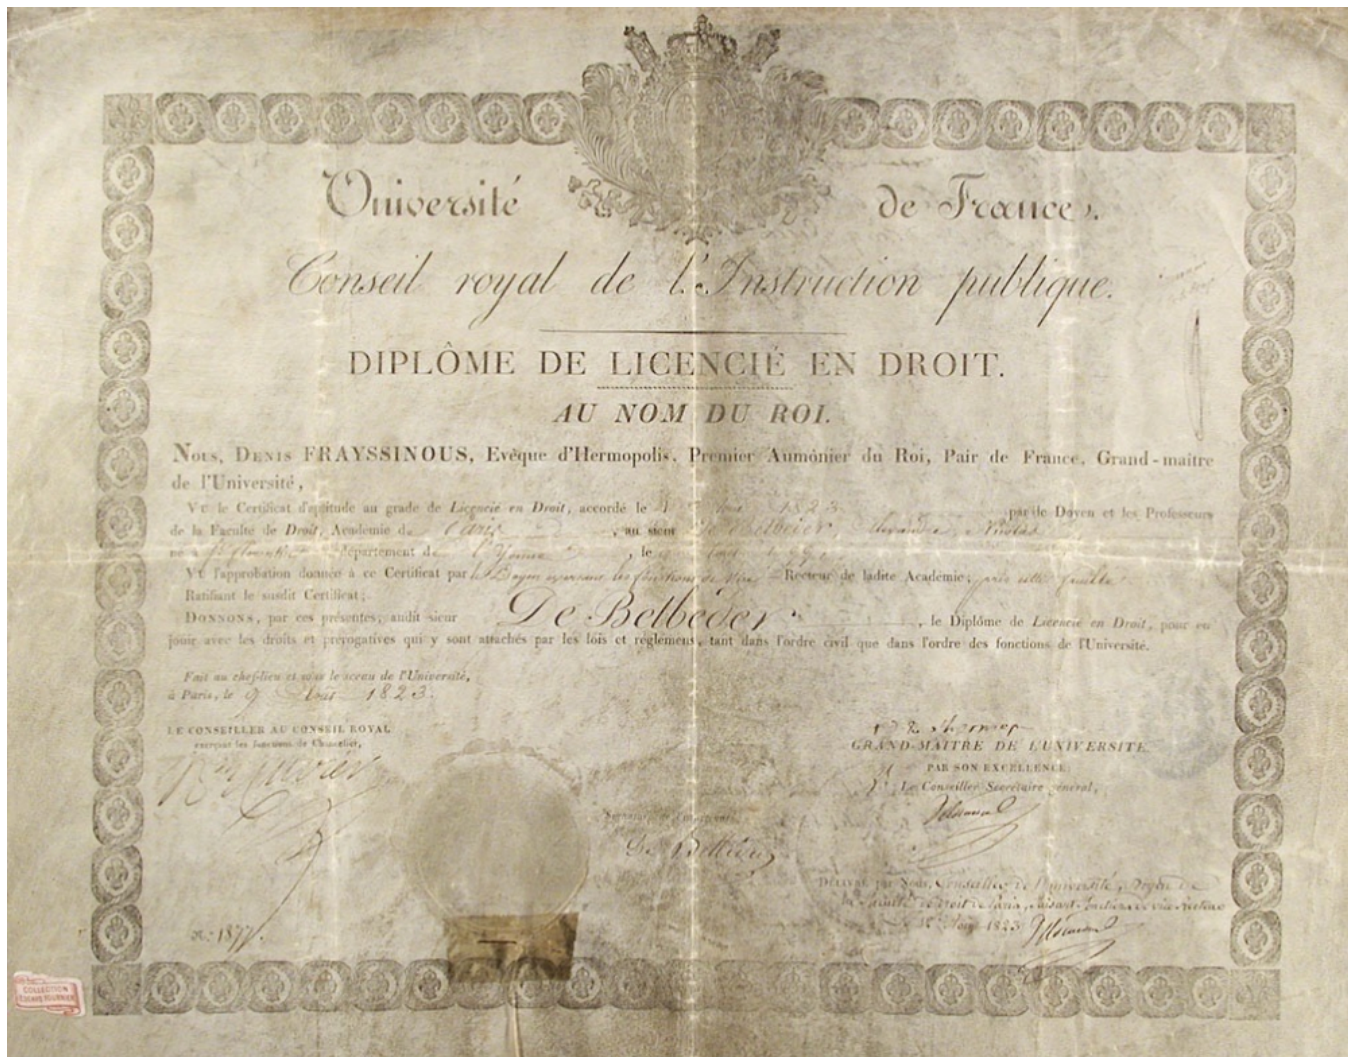 Université de France.
Conseil royal de l'Instruction publique.
DIPLÔME DE LICENCIÉ EN DROIT.
AU NOM DU ROI.
Nous, Denis FRAYSSINOUS, Evêque d'Hermopolis, Premier Aumônier du Roi, Pair de France, Grand-maître
de l'Université,
Vu le Certificat d'aptitude au grade de Licencié en Droit, accordé le 1823 par le Doyen et les Professeurs
de la Faculté de Droit, Académie de Paris, au sieur De Belbeder, Alexandre Nicolas
né à département de l'Yonne, le
Vu l'approbation donnée à ce Certificat par le Doyen exerçant les fonctions de Recteur de ladite Académie;
Ratifiant le susdit Certificat;
Donnons, par ces présentes, audit sieur De Belbeder, le Diplôme de Licencié en Droit, pour en
jouir avec les droits et prérogatives qui y sont attachés par les lois et réglemens, tant dans l'ordre civil que dans l'ordre des fonctions de l'Université.
Fait au chef-lieu et sous le sceau de l'Université,
à Paris, le 9 Août 1823.
LE CONSEILLER AU CONSEIL ROYAL
exerçant les fonctions de Chancelier,
GRAND-MAÎTRE DE L'UNIVERSITÉ
PAR SON EXCELLENCE:
Le Conseiller Secrétaire général,
Signature de l'impétrant
De Belbeder
Délivré par Nous, Conseiller de l'Université, Doyen de
la Faculté de Droit de Paris, faisant fonctions de vice Recteur
Août 1823
N.° 1877.
COLLECTION